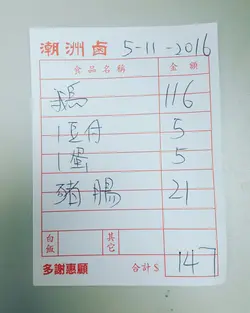 潮洲鹵 5-11-2016
食品名稱 金額
鵝 116
1豆付 5
1蛋 5
豬腸 21
白飯 其它
多謝惠顧 合計$ 147